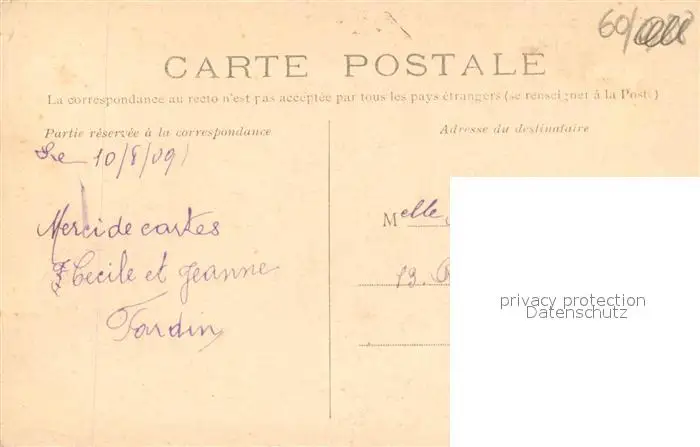 60/
CARTE POSTALE
La correspondance au recto n'est pas acceptée par tous les pays étrangers (se renseigner à la Poste)
Partie réservée à la correspondance
Adresse du destinataire
Le 10/8/09
Melle
Merci de cartes
Cecile et Jeanne
19.
Tardin
privacy protection
Datenschutz